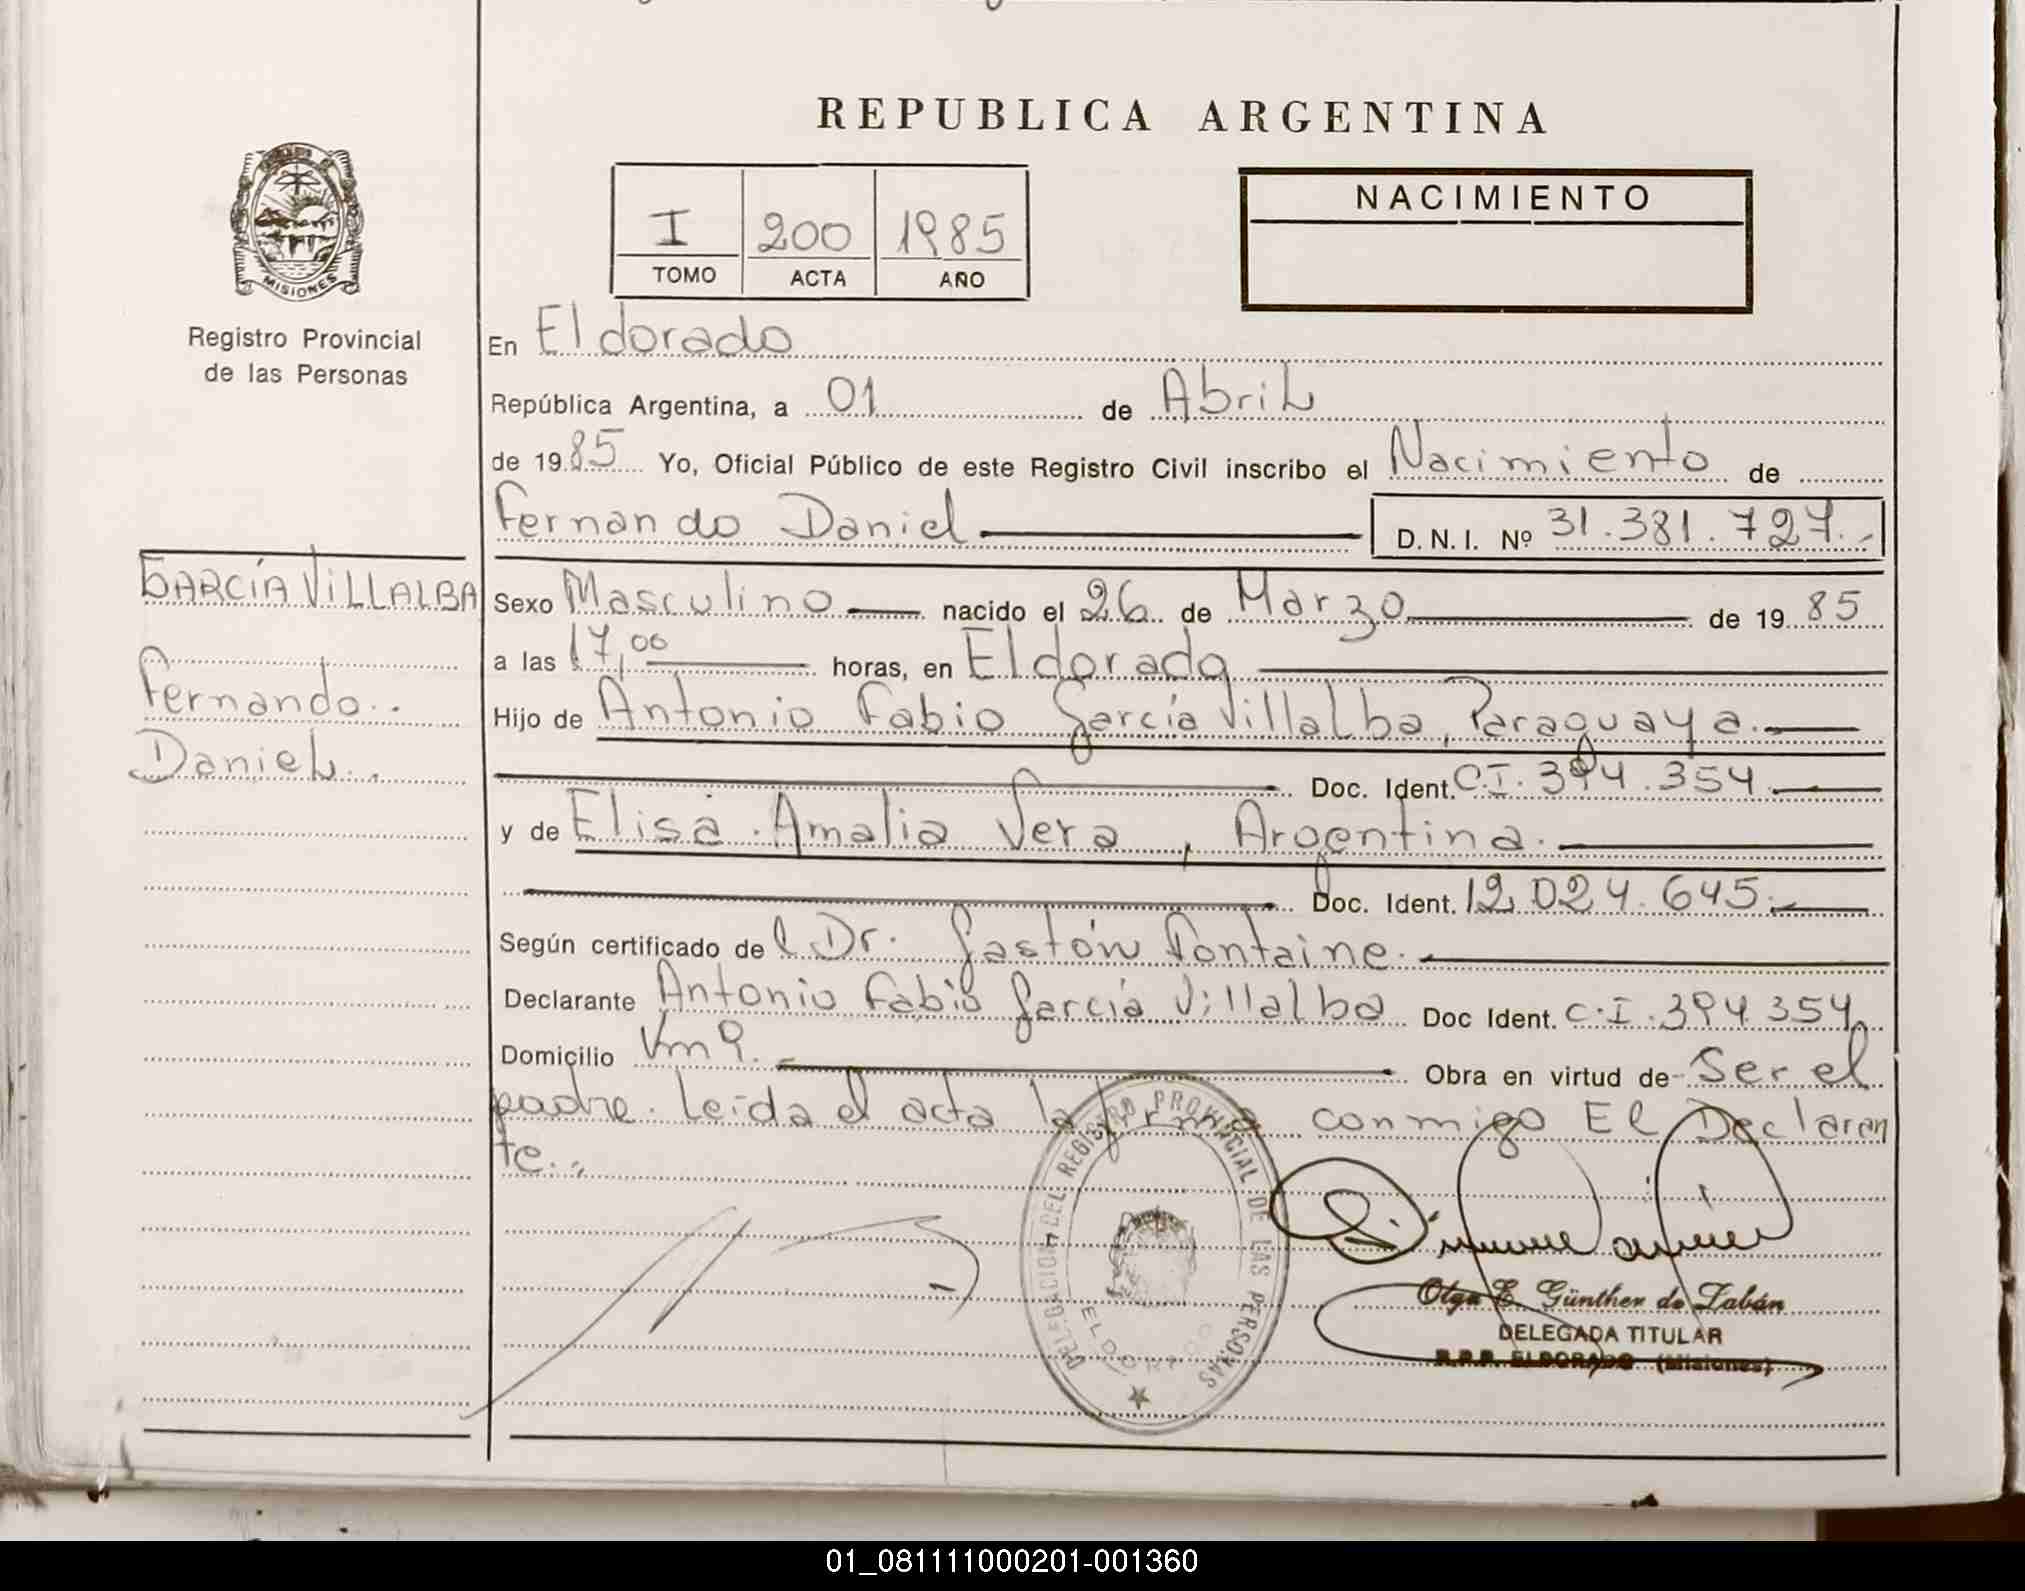 REPUBLICA ARGENTINA
MISIONES
Registro Provincial
de las Personas
I 200 1985
TOMO ACTA AÑO
NACIMIENTO
En Eldorado
República Argentina, a 01 de Abril
de 1985 Yo, Oficial Público de este Registro Civil inscribo el Nacimiento de
Fernando Daniel D.N.I. Nº 31.381.727.-
GARCÍA VILLALBA
Fernando
Daniel
Sexo Masculino nacido el 26 de Marzo de 1985
a las 17,00 horas, en Eldorado
Hijo de Antonio Fabio García Villalba, Paraguaya.
Doc. Ident. C.I. 394.354.
y de Elisa Amalia Vera, Argentina.
Doc. Ident. 12.024.645.
Según certificado del Dr. Gastón Fontaine.
Declarante Antonio Fabio García Villalba Doc Ident. C.I. 394.354
Domicilio Km 9. Obra en virtud de Ser el
padre. Leída el acta la firma conmigo El Declaran
te.
DELEGACION DEL REGISTRO PROVINCIAL DE LAS PERSONAS
ELDORADO
Olga E. Günther de Zabán
DELEGADA TITULAR
R.P.P. ELDORADO (Misiones)
01_081111000201-001360